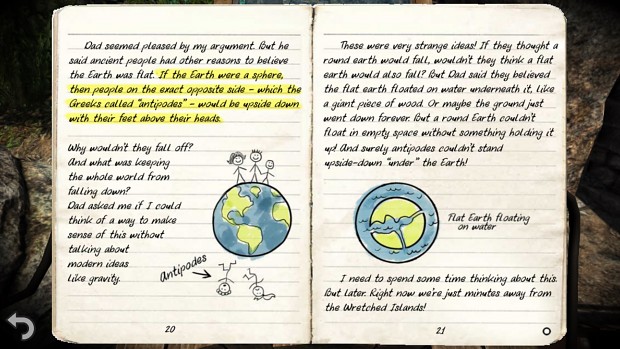 Dad seemed pleased by my argument. But he
said ancient people had other reasons to believe
the Earth was flat. If the Earth were a sphere,
then people on the exact opposite side – which the
Greeks called "antipodes" – would be upside down
with their feet above their heads.
Why wouldn't they fall off?
And what was keeping
the whole world from
falling down?
Dad asked me if I could
think of a way to make
sense of this without
talking about
modern ideas
like gravity.
Antipodes
20
These were very strange ideas! If they thought a
round earth would fall, wouldn't they think a flat
earth would also fall? But Dad said they believed
the flat earth floated on water underneath it, like
a giant piece of wood. Or maybe the ground just
went down forever. But a round Earth couldn't
float in empty space without something holding it
up! And surely antipodes couldn't stand
upside-down "under" the Earth!
Flat Earth floating
on water
I need to spend some time thinking about this.
But later. Right now we're just minutes away from
the Wretched Islands!
21